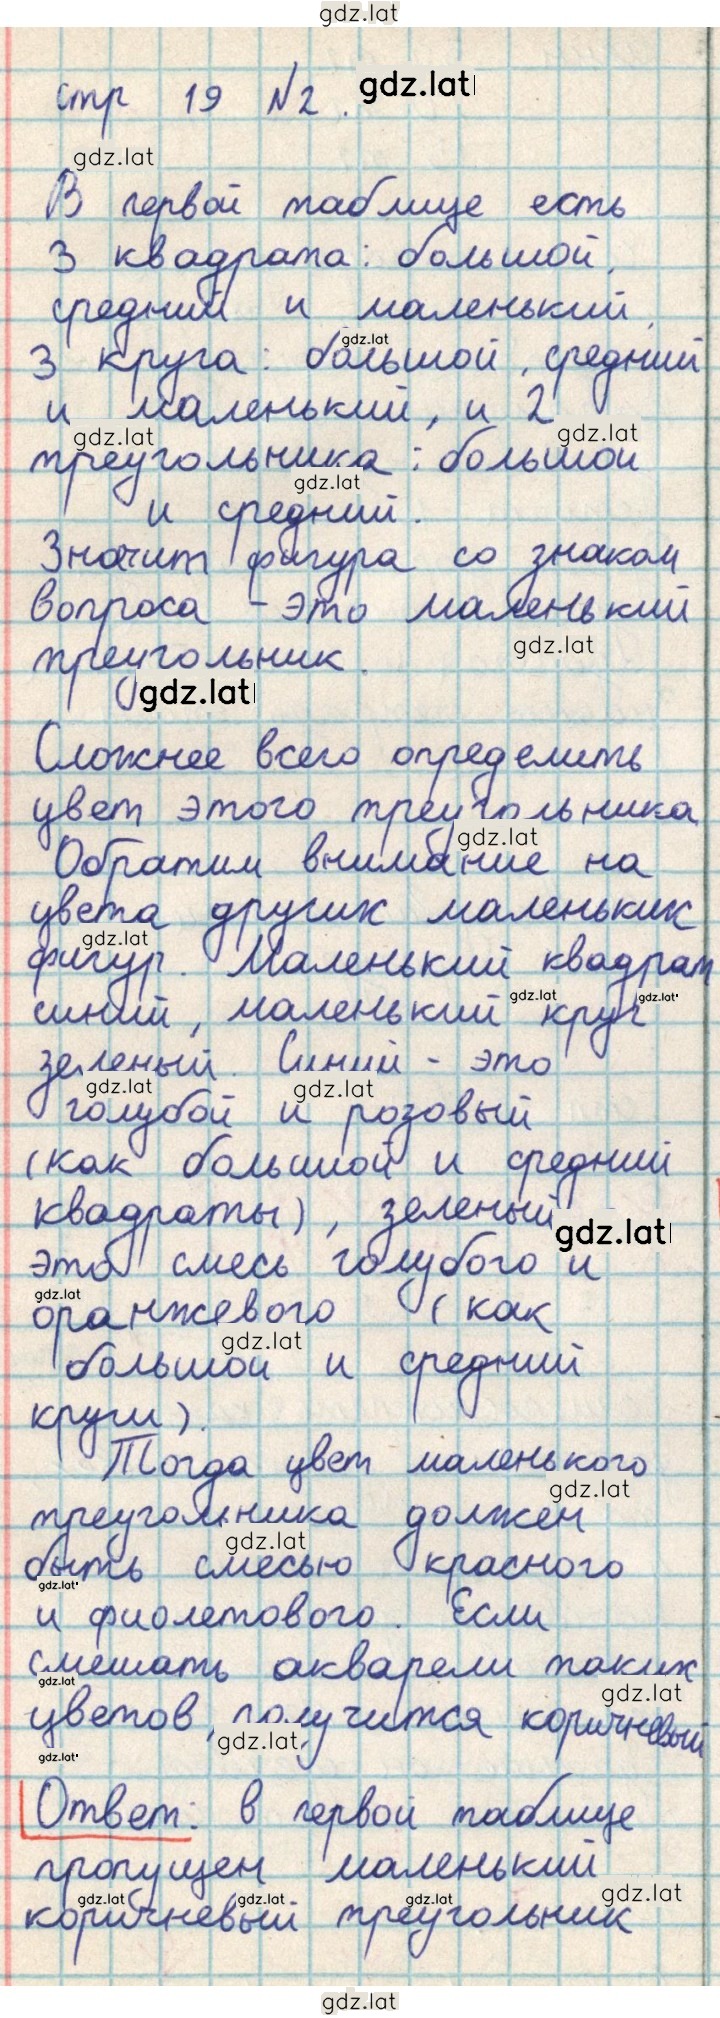 gdz.lat
стр 19 №2. gdz.lat
gdz.lat
В первой таблице есть
3 квадрата: большой,
средний и маленький,
gdz.lat
3 круга: большой, средний
и маленький, и 2
gdz.lat gdz.lat
треугольника: большой
gdz.lat
и средний.
Значит фигура со знаком
вопроса - это маленький
gdz.lat
треугольник.
gdz.lat
Сложнее всего определить
цвет этого треугольника
gdz.lat
Обратим внимание на
цвета других маленьких
gdz.lat
фигур. Маленький квадрат
gdz.lat gdz.lat
синий, маленький круг
зеленый. Синий - это
gdz.lat gdz.lat
голубой и розовый
(как большой и средний
квадраты), зеленый
gdz.lat
это смесь голубого и
gdz.lat
оранжевого (как
gdz.lat
большой и средний
круги).
Тогда цвет маленького
gdz.lat
треугольника должен
gdz.lat
быть смесью красного
gdz.lat
и фиолетового. Если
смешать акварели таких
gdz.lat gdz.lat
цветов, получится коричневый
gdz.lat
gdz.lat
Ответ: в первой таблице
пропущен маленький
gdz.lat gdz.lat gdz.lat gdz.lat
коричневый треугольник
gdz.lat